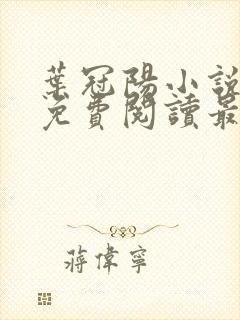 葉冠陽小說
免費閱讀最
蔣偉寧